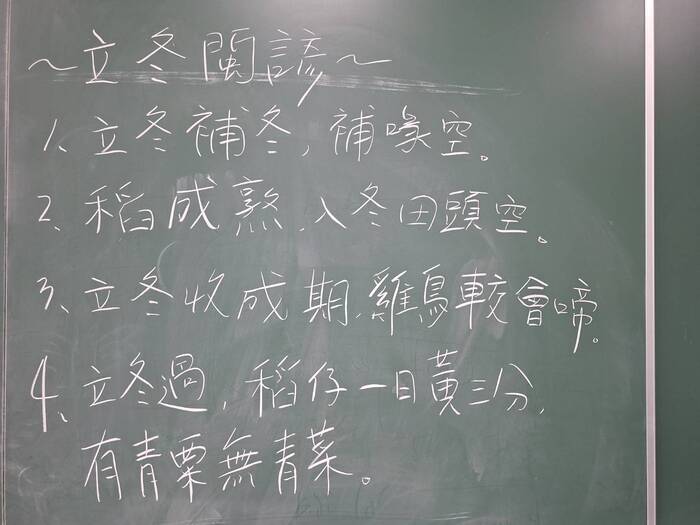 ～立冬閩諺～
1、立冬補冬，補喙空。
2、稻成熟，入冬田頭空。
3、立冬收成期，雞鳥較會啼。
4、立冬過，稻仔一日黃三分，
有青粟無青菜。